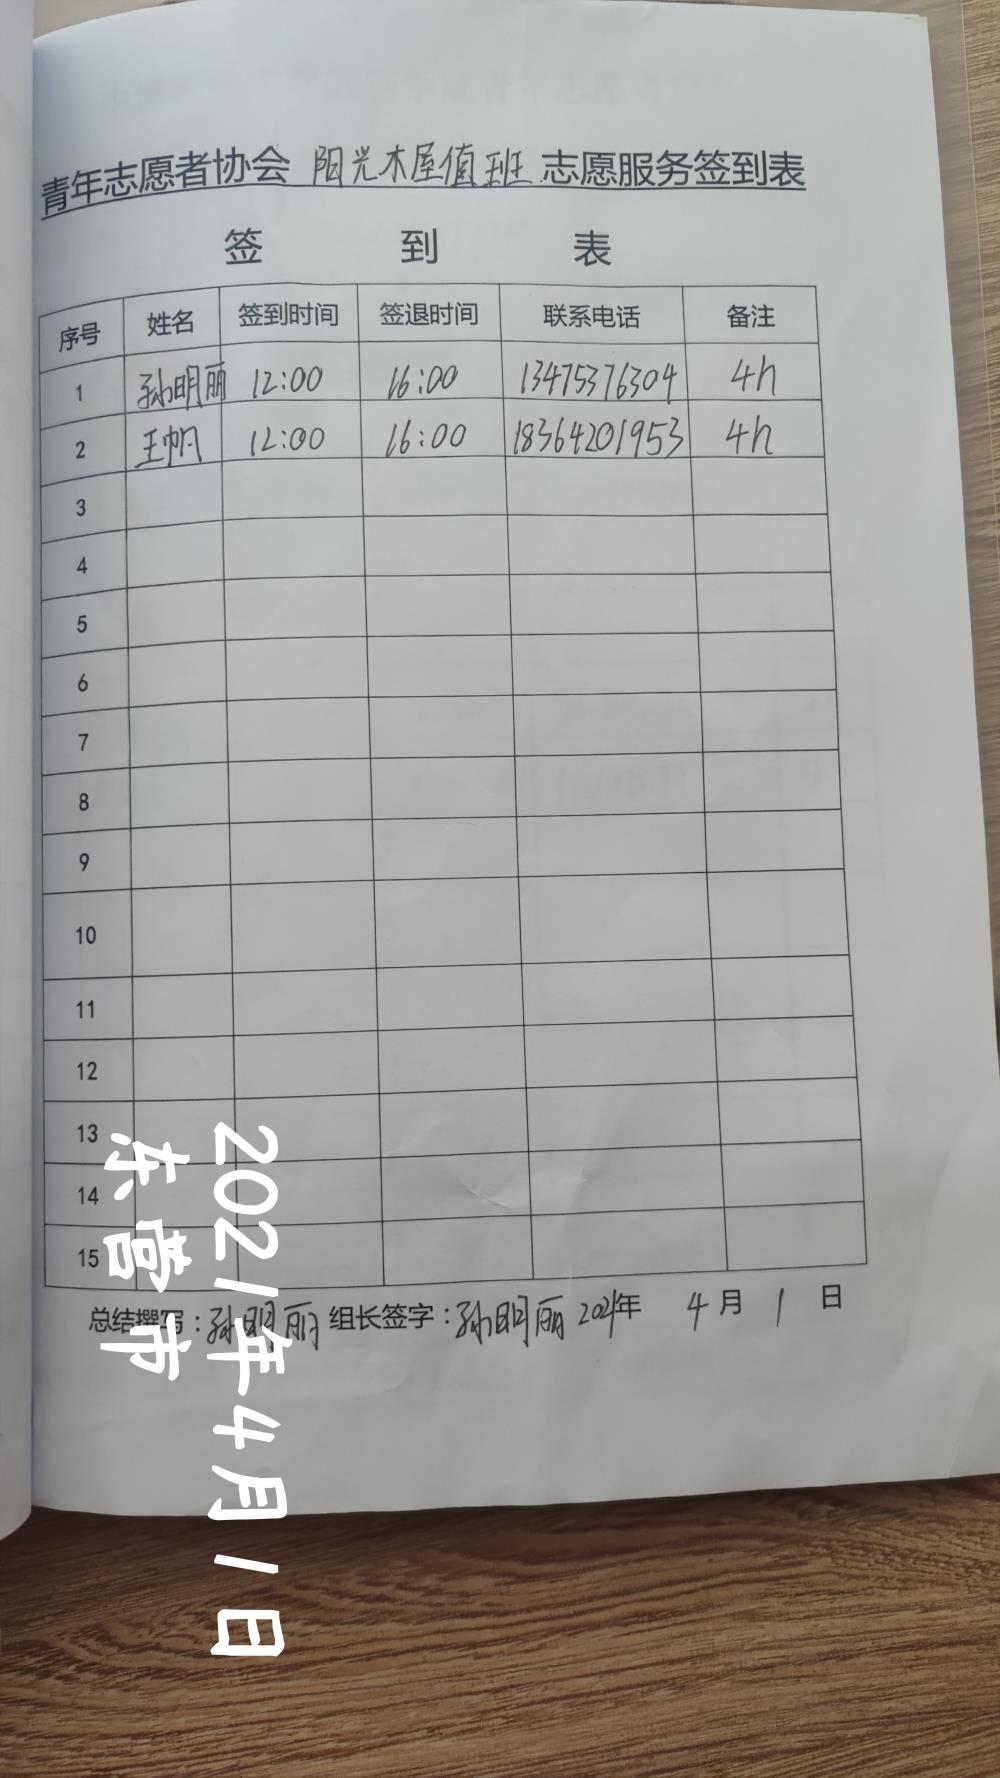 青年志愿者协会 阳光木屋值班 志愿服务签到表
签 到 表
序号 姓名 签到时间 签退时间 联系电话 备注
1 孙明丽 12:00 16:00 13475376304 4h
2 王帆 12:00 16:00 18364201953 4h
3
4
5
6
7
8
9
10
11
12
13
14
15
总结撰写：孙明丽 组长签字：孙明丽 2021年 4月 1 日
2021年4月1日
东营市